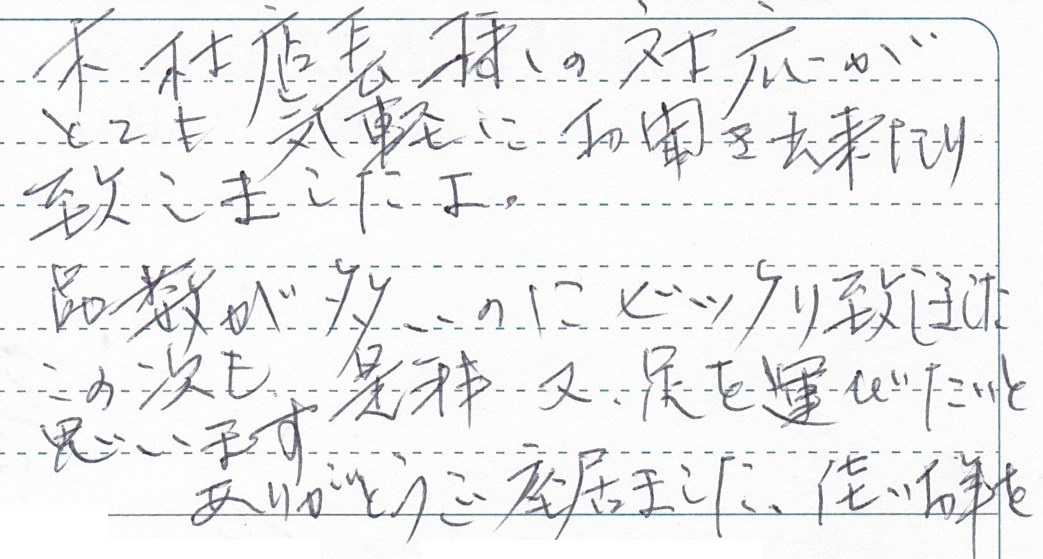 木村店長様の対応が
とても気軽にお聞き出来たり
致しましたよ。
品数が多いのにビックリ致しました
この次も、是非 又、足を運びたいと
思います
ありがとうご座居ました、佳いお年を